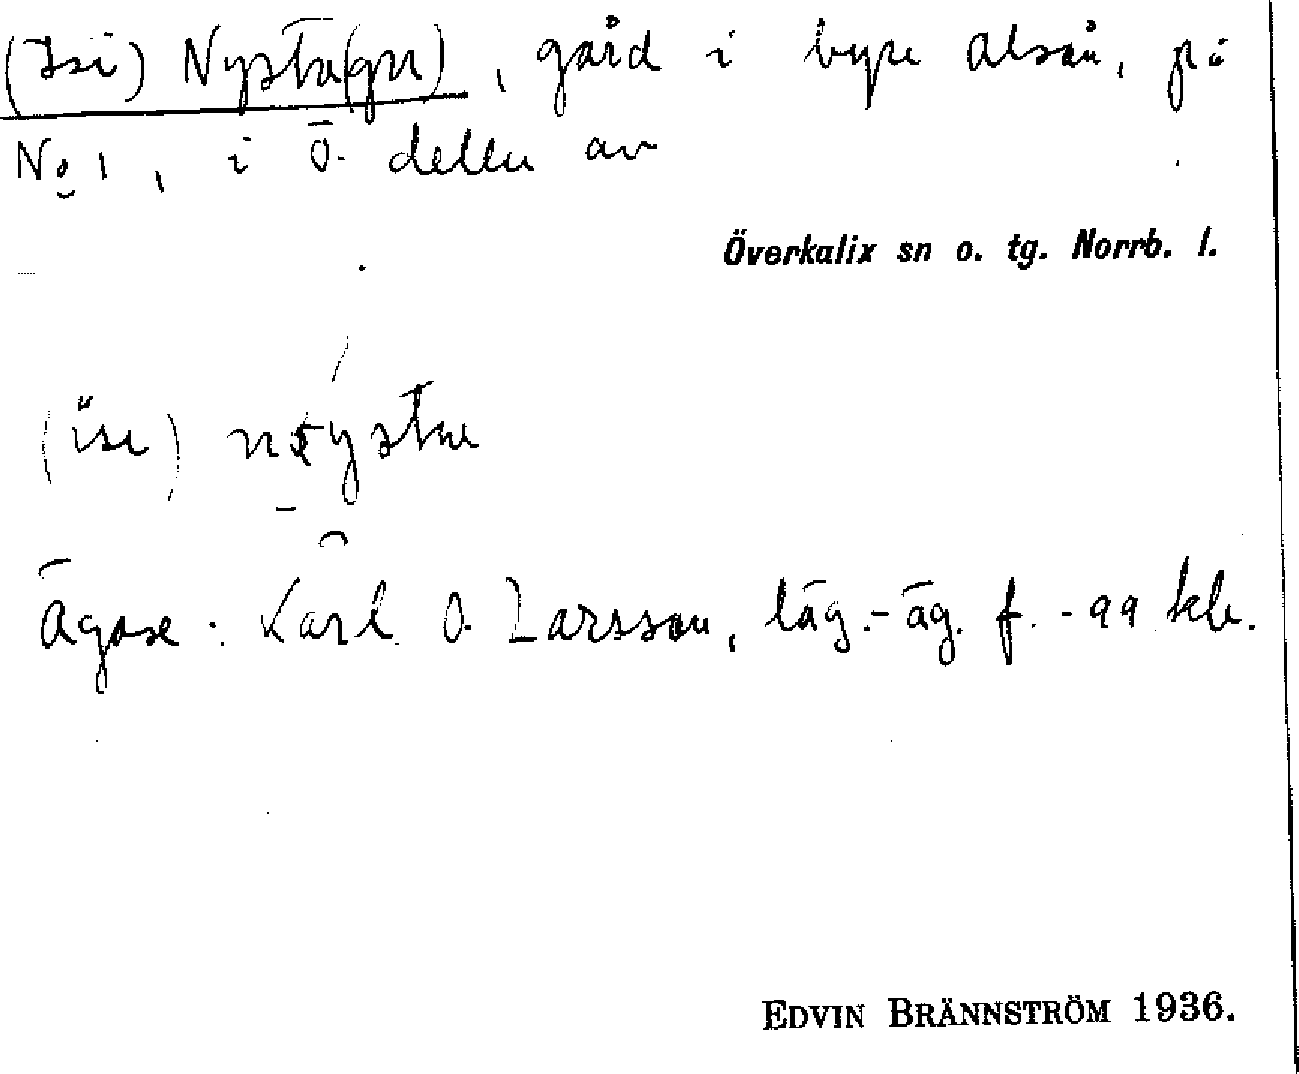 (Isi) Nysta(gu), gård i byn Alsån, på
No 1, i Ö. delen av
Överkalix sn o. tg. Norrb. l.
(ise)
Ägare: Karl O. Larsson, läg.-äg. f. -99 kls.
EDVIN BRÄNNSTRÖM 1936.